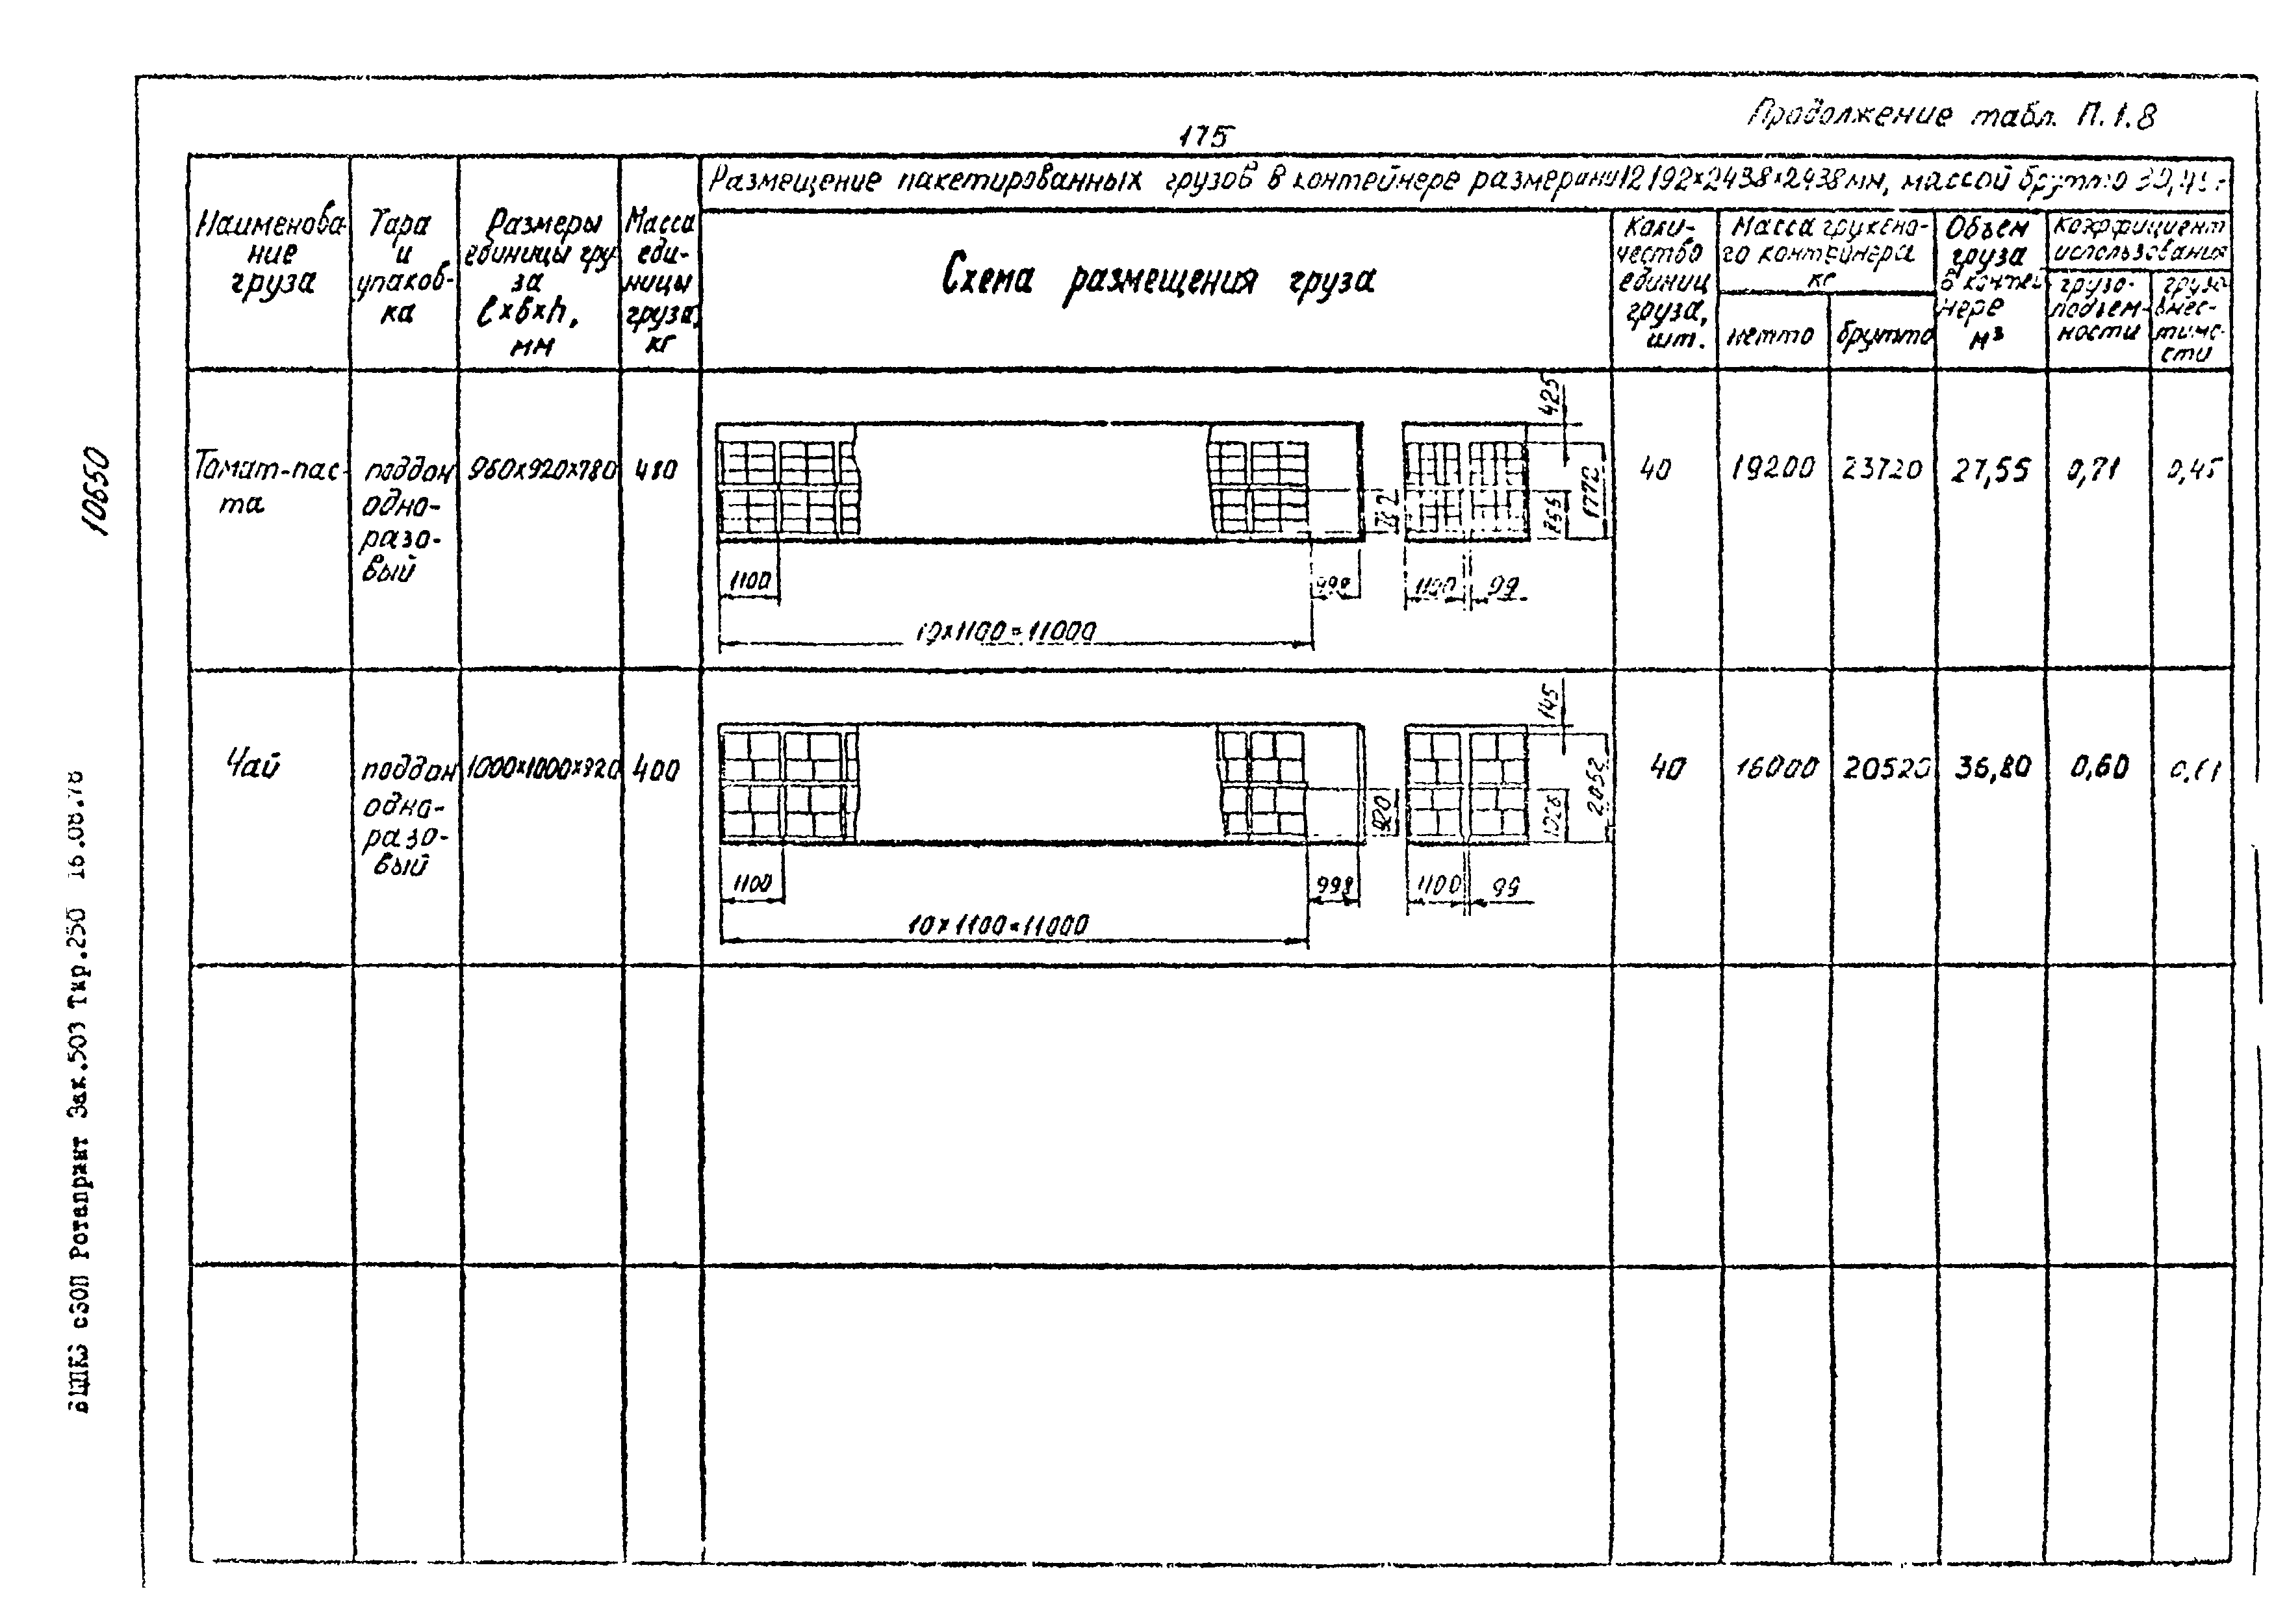 Продолжение табл. П.1.8
175
Наименова-
ние
груза
Тара
и
упаков-
ка
Размеры
единицы гру
за
l×b×h,
мм
Масса
еди-
ницы
груза,
кг
Размещение пакетированных грузов в контейнере размерами 12192×2438×2438мм, массой брутто
Схема размещения груза
Коли-
чество
единиц
груза,
шт.
Масса гружено-
го контейнера
кг
нетто
брутто
Объем
груза
в контей
нере
м³
Коэффициент
использования
грузо-
подъем-
ности
грузо
вмес-
тимо-
сти
Томат-пас-
та
поддон
одно-
разо-
вый
960×920×780
480
425
1770
1100
998
1100
99
10×1100=11000
40
19200
23720
27,55
0,71
0,45
Чай
поддон
одно-
разо-
вый
1000×1000×920
400
145
2052
920
1100
998
1100
99
10×1100=11000
40
16000
20520
36,80
0,60
0,61
10650
Ротапринт Зак.503 Тир.250 16.08.78